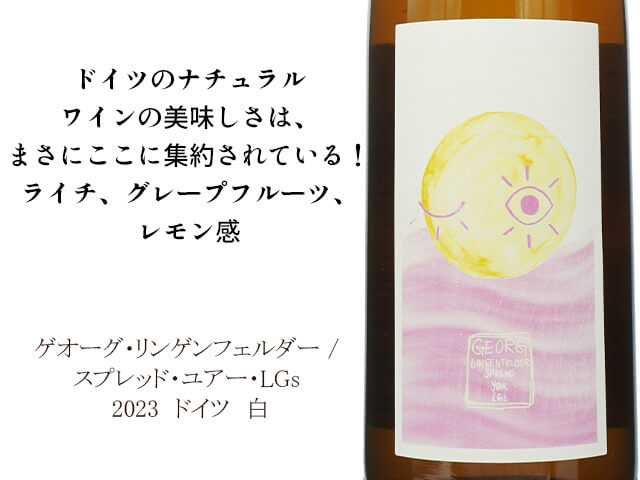 ドイツのナチュラル
ワインの美味しさは、
まさにここに集約されている！
ライチ、グレープフルーツ、
レモン感
ゲオーグ・リンゲンフェルダー /
スプレッド・ユアー・LGs
2023 ドイツ 白
GEORG
LINGENFELDER
SPREAD
YOUR
LGs